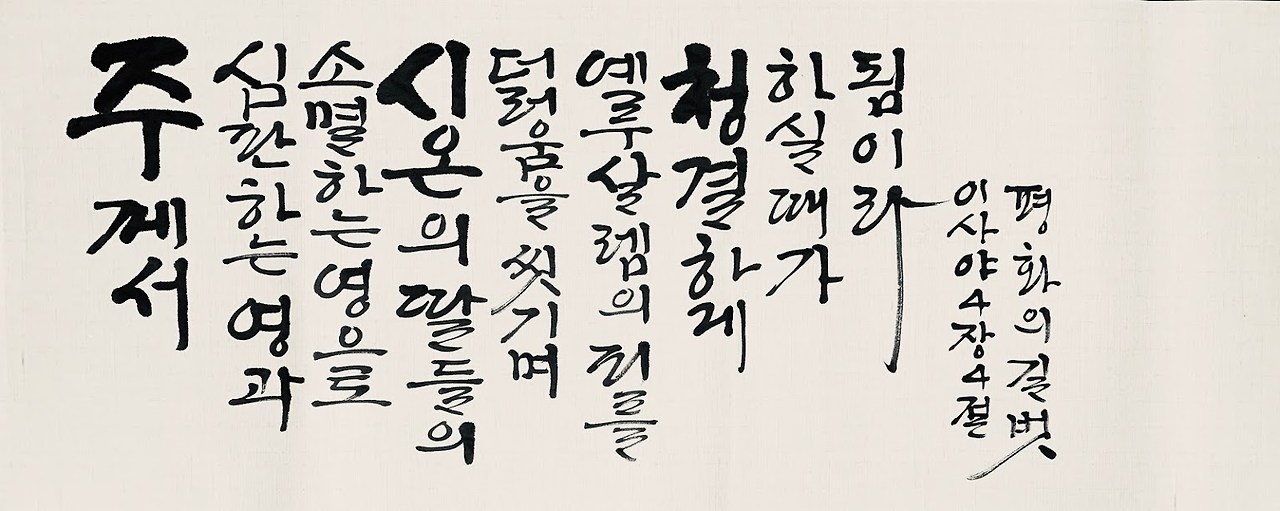 주께서
심판하는 영과
소멸하는 영으로
시온의 딸들의
더러움을 씻기며
예루살렘의 피를
청결하게
하실 때가
됨이라
이사야 4장 4절
평화의 길벗